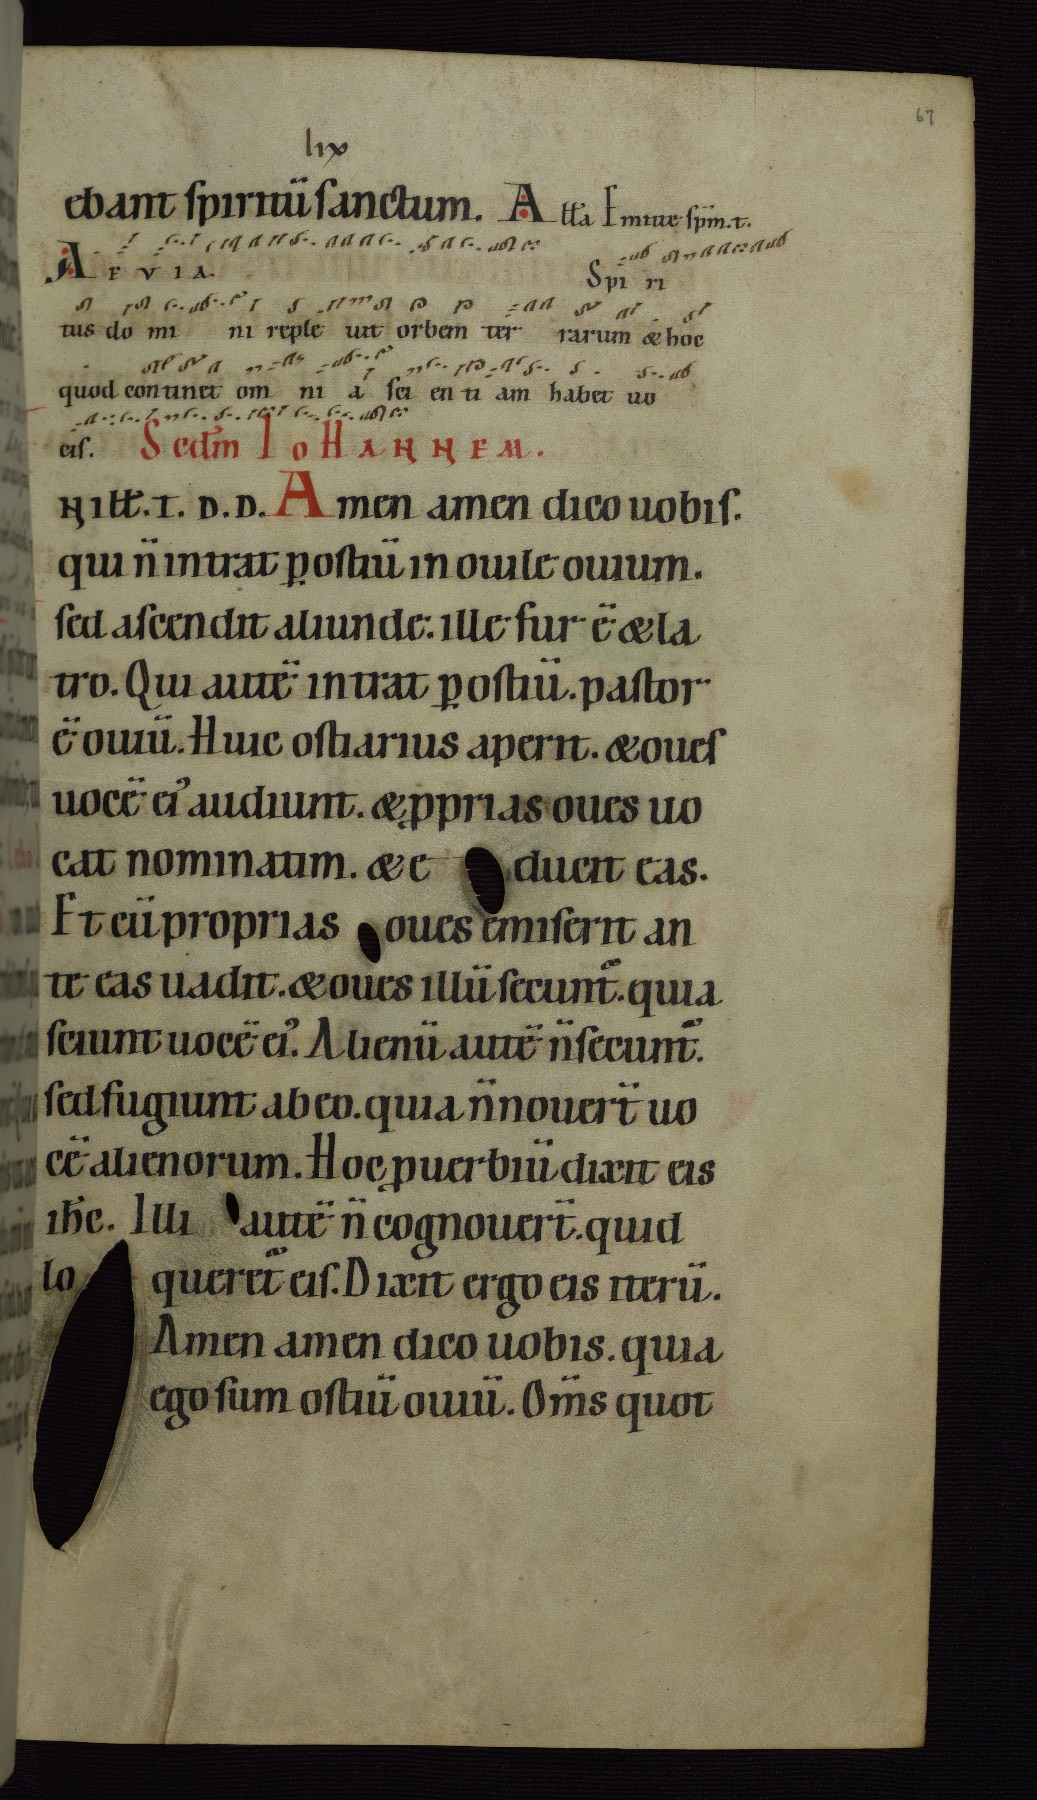 67
lix
ebant spiritū sanctum. A ll'a Emitte sp̄m. t.
A E V I A. Spi ri
tus do mi ni reple uit orbem ter rarum & hoc
quod continet om ni a sci en ti am habet uo
cis. Scdm IoHANNEM.
N ill'. T. D. D. Amen amen dico uobis.
qui n̄ intrat ꝑ ostiū in ouile ouium.
sed ascendit aliunde. ille fur ē & la
tro. Qui autē intrat ꝑ ostiū. pastor
ē ouiū. Huic ostiarius aperit. & oues
uocē ei' audiunt. & ꝓprias oues uo
cat nominatim. & e ducit eas.
Et cū proprias oues emiserit an
te eas uadit. & oues illū secunt᷑. quia
sciunt uocē ei'. Alienū autē n̄ secunt᷑.
sed fugiunt ab eo. quia n̄ nouer̄t uo
cē alienorum. Hoc ꝓuerbiū dixit eis
ih̄c. Illi autē n̄ cognouer̄t. quid
lo queret᷑ eis. Dixit ergo eis iterū.
Amen amen dico uobis. quia
ego sum ostiū ouiū. Om̄s quot